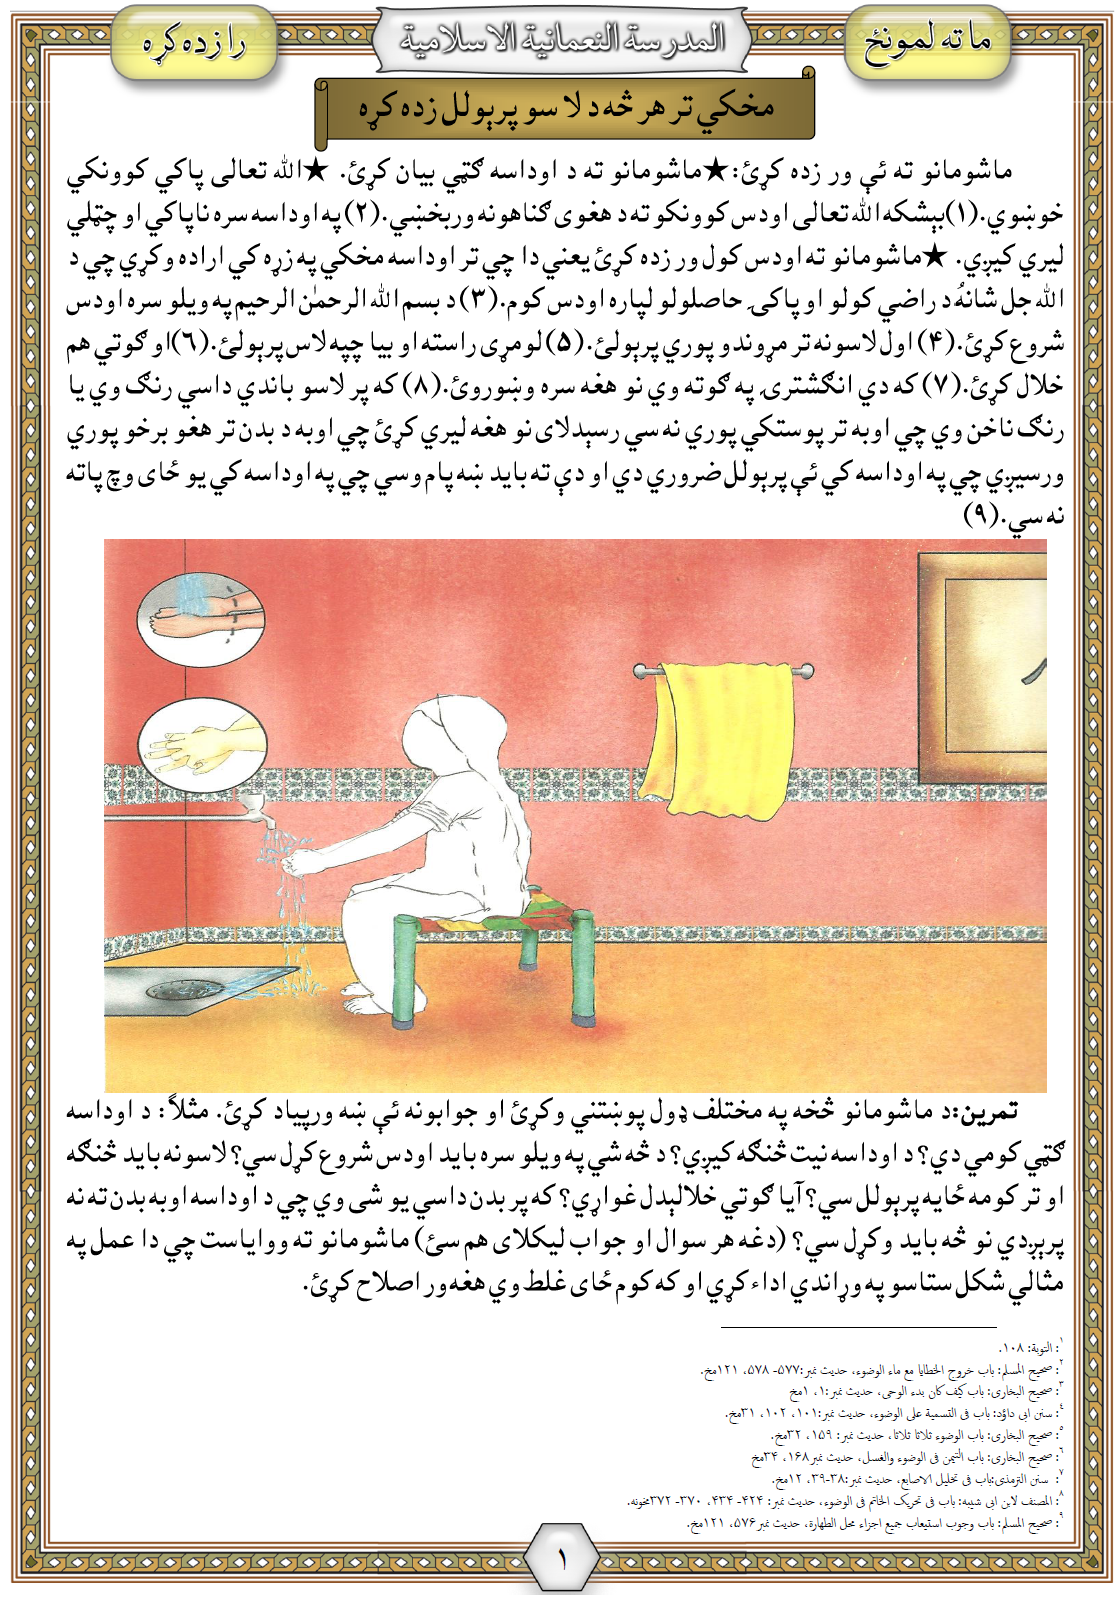 ما ته لمونځ
المدرسة النعمانية الاسلامية
را زده کړه
مخکي تر هر څه د لاسو پرېولل زده کړه
ماشومانو ته ئې ور زده کړئ:★ماشومانو ته د اوداسه ګټي بيان کړئ. ★الله تعالی پاکي کوونکي
خوښوي.(۱)بېشکه الله تعالی اودس کوونکو ته د هغوی ګناهونه وربخښي.(۲) په اوداسه سره ناپاکي او چټلي
ليري کيږي. ★ماشومانو ته اودس کول ور زده کړئ يعني دا چي تر اوداسه مخکي په زړه کي اراده وکړي چي د
الله جل شانهُ د راضي کولو او پاکۍ حاصلولو لپاره اودس کوم.(۳) د بسم الله الرحمٰن الرحيم په ويلو سره اودس
شروع کړئ.(۴) اول لاسونه تر مړوندو پوري پرېولئ.(۵) لومړی راسته او بيا چپه لاس پرېولئ.(۶)او ګوتي هم
خلال کړئ.(۷) که دي انګشترۍ په ګوته وي نو هغه سره وښوروئ.(۸) که پر لاسو باندي داسي رنګ وي يا
رنګ ناخن وي چي اوبه تر پوستکي پوري نه سي رسېدلای نو هغه ليري کړئ چي اوبه د بدن تر هغو برخو پوري
ورسيږي چي په اوداسه کي ئې پرېولل ضروري دي او دې ته بايد ښه پام وسي چي په اوداسه کي يو ځای وچ پاته
نه سي.(۹)
تمرين:د ماشومانو څخه په مختلف ډول پوښتني وکړئ او جوابونه ئې ښه ورپياد کړئ. مثلاً: د اوداسه
ګټي کومي دي؟ د اوداسه نيت څنګه کيږي؟ د څه شي په ويلو سره بايد اودس شروع کړل سي؟ لاسونه بايد څنګه
او تر کومه ځايه پرېولل سي؟ آيا ګوتي خلالېدل غواړي؟ که پر بدن داسي يو شی وي چي د اوداسه اوبه بدن ته نه
پرېږدي نو څه بايد وکړل سي؟ (دغه هر سوال او جواب ليکلای هم سئ) ماشومانو ته وواياست چي دا عمل په
مثالي شکل ستاسو په وړاندي اداء کړي او که کوم ځای غلط وي هغه ور اصلاح کړئ.
۱: التوبة: ۱۰۸.
۲: صحيح المسلم: باب خروج الخطايا مع ماء الوضوء، حديث نمبر:۵۷۷- ۵۷۸، ۱۲۱مخ.
۳: صحيح البخاری: باب کيف کان بدء الوحی، حديث نمبر:۱، ۱مخ
۴: سنن ابی داؤد: باب فی التسمية علی الوضوء، حديث نمبر:۱۰۱، ۱۰۲، ۳۱مخ.
۵: صحيح البخاری: باب الوضوء ثلاثا ثلاثا، حديث نمبر: ۱۵۹، ۳۲مخ.
۶: صحيح البخاری: باب التيمن فی الوضوء والغسل، حديث نمبر۱۶۸، ۳۴مخ
۷: سنن الترمذی:باب فی تخليل الاصابع، حديث نمبر:۳۸-۳۹، ۱۲مخ.
۸: المصنف لابن ابی شيبه: باب فی تحريک الخاتم فی الوضوء، حديث نمبر: ۴۲۴- ۴۳۴، ۳۷۰- ۳۷۲مخونه.
۹: صحيح المسلم: باب وجوب استيعاب جميع اجزاء محل الطهارة، حديث نمبر۵۷۶، ۱۲۱مخ.
۱